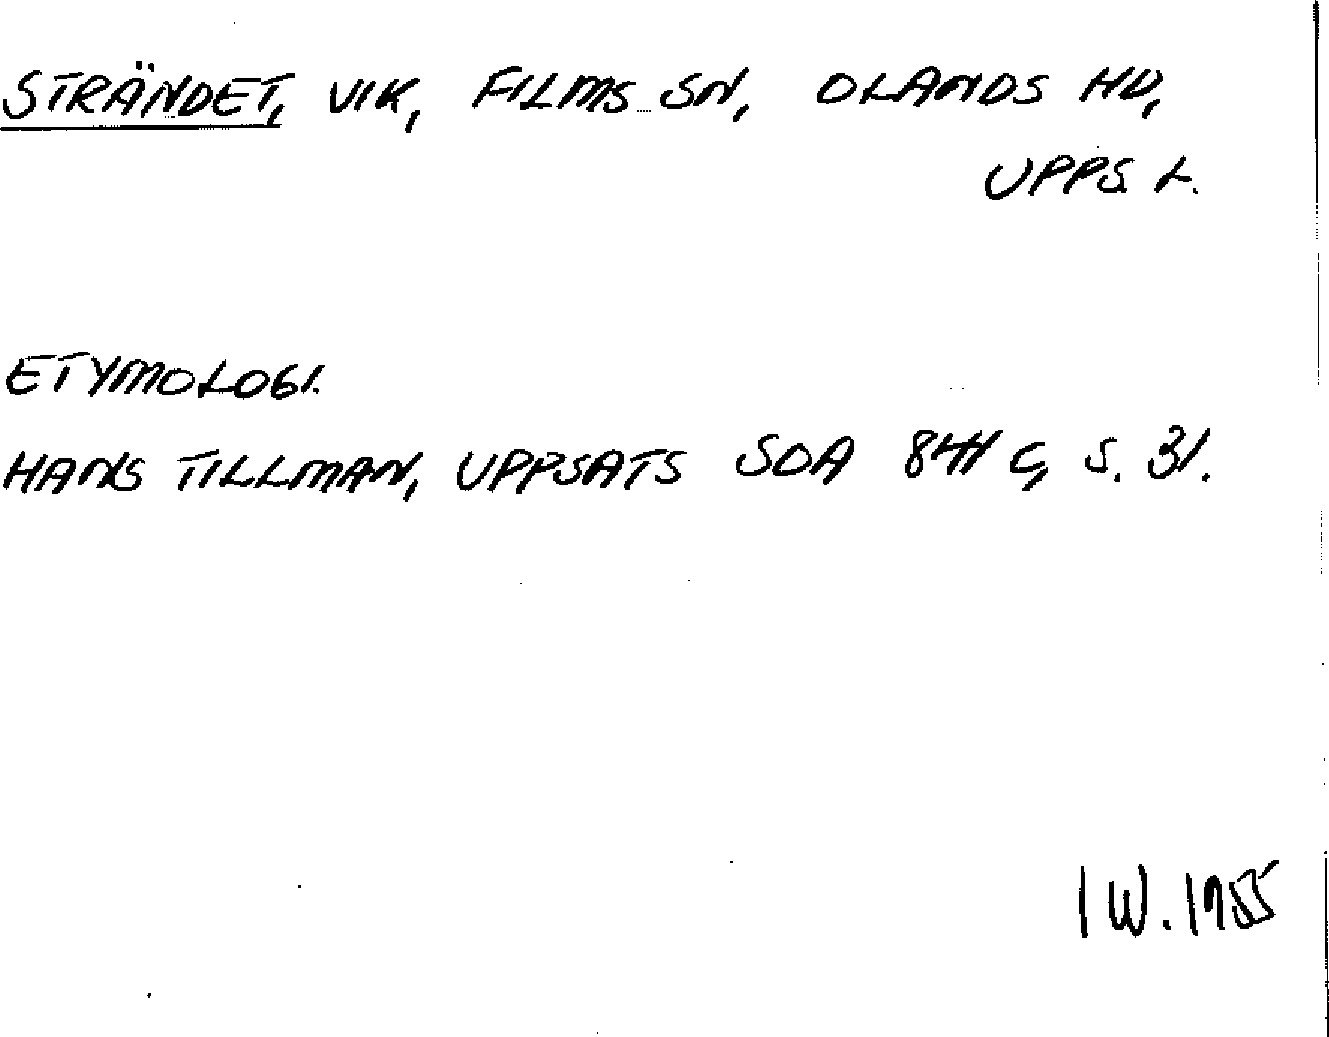 STRÄNDET, VIK, FILMS SN, OLANDS HD,
UPPS L.
ETYMOLOGI.
HANS TILLMAN, UPPSATS SOA C, S. 31.
IW.